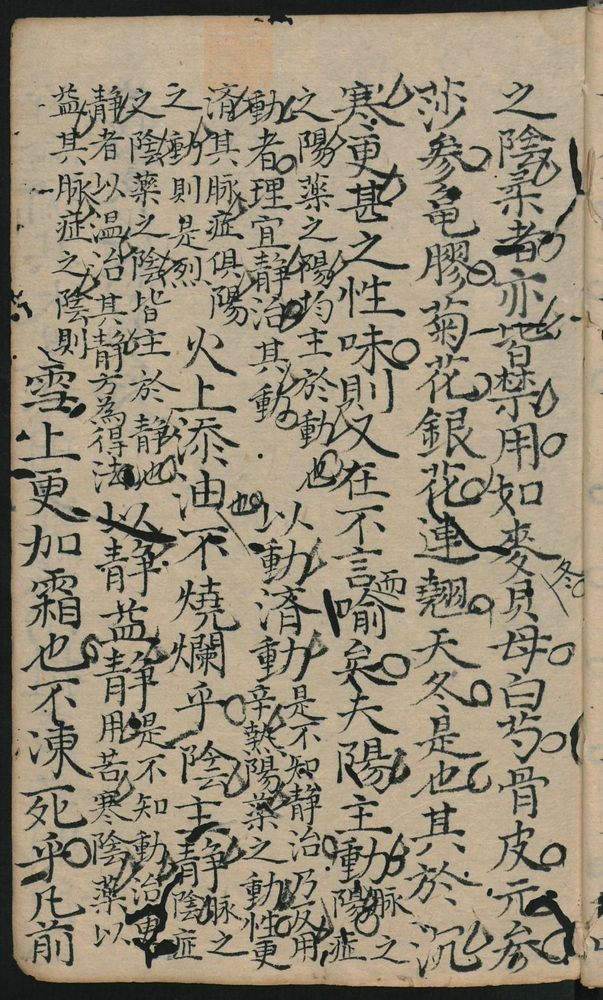 之陰柔者亦皆禁用如麥冬貝母白芍骨皮元參
沙參龜膠菊花銀花連翹天冬是也其於沉
寒更甚之性味則又在不言而喻矣夫陽主動脉之陽症
之陽藥之陽均主於動也動者理宜靜治其動也以動濟動是不知靜治乃反用辛熱陽藥之動性更
濟其脉症俱陽之動則是烈火上添油不燒爛乎陰主靜脉之陰症
之陰藥之陰皆主於靜也靜者以温治其靜方為得法以靜益靜是不知動治用苦寒陰藥以
益其脉症之陰則雪上更加霜也不凍死乎凡前